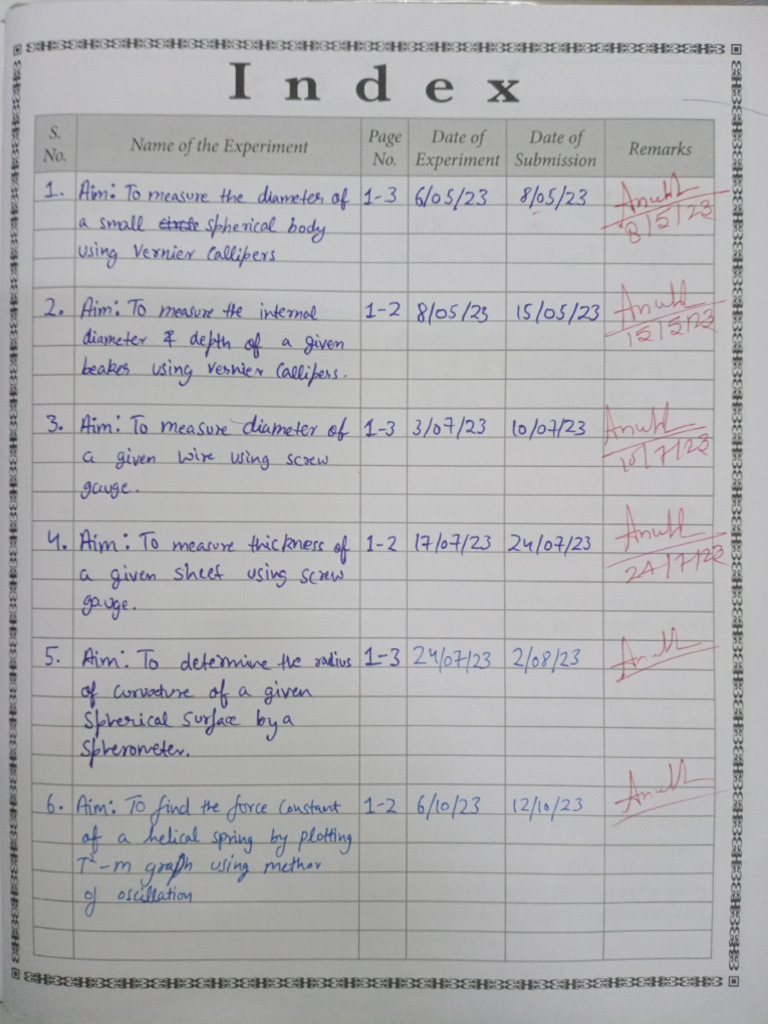 Index
S. No. Name of the Experiment Page No. Date of Experiment Date of Submission Remarks
1. Aim: To measure the diameter of 1-3 6/05/23 8/05/23
a small circle spherical body 8/5/23
using Vernier Callipers
2. Aim: To measure the internal 1-2 8/05/23 15/05/23
diameter & depth of a given 15/5/23
beaker using Vernier Callipers.
3. Aim: To measure diameter of 1-3 3/07/23 10/07/23
a given wire using screw 10/7/23
gauge.
4. Aim: To measure thickness of 1-2 17/07/23 24/07/23
a given sheet using screw 24/7/23
gauge.
5. Aim: To determine the radius 1-3 24/07/23 2/08/23
of curvature of a given
spherical surface by a
spherometer.
6. Aim: To find the force constant 1-2 6/10/23 12/10/23
of a helical spring by plotting
T²-m graph using method
of oscillation